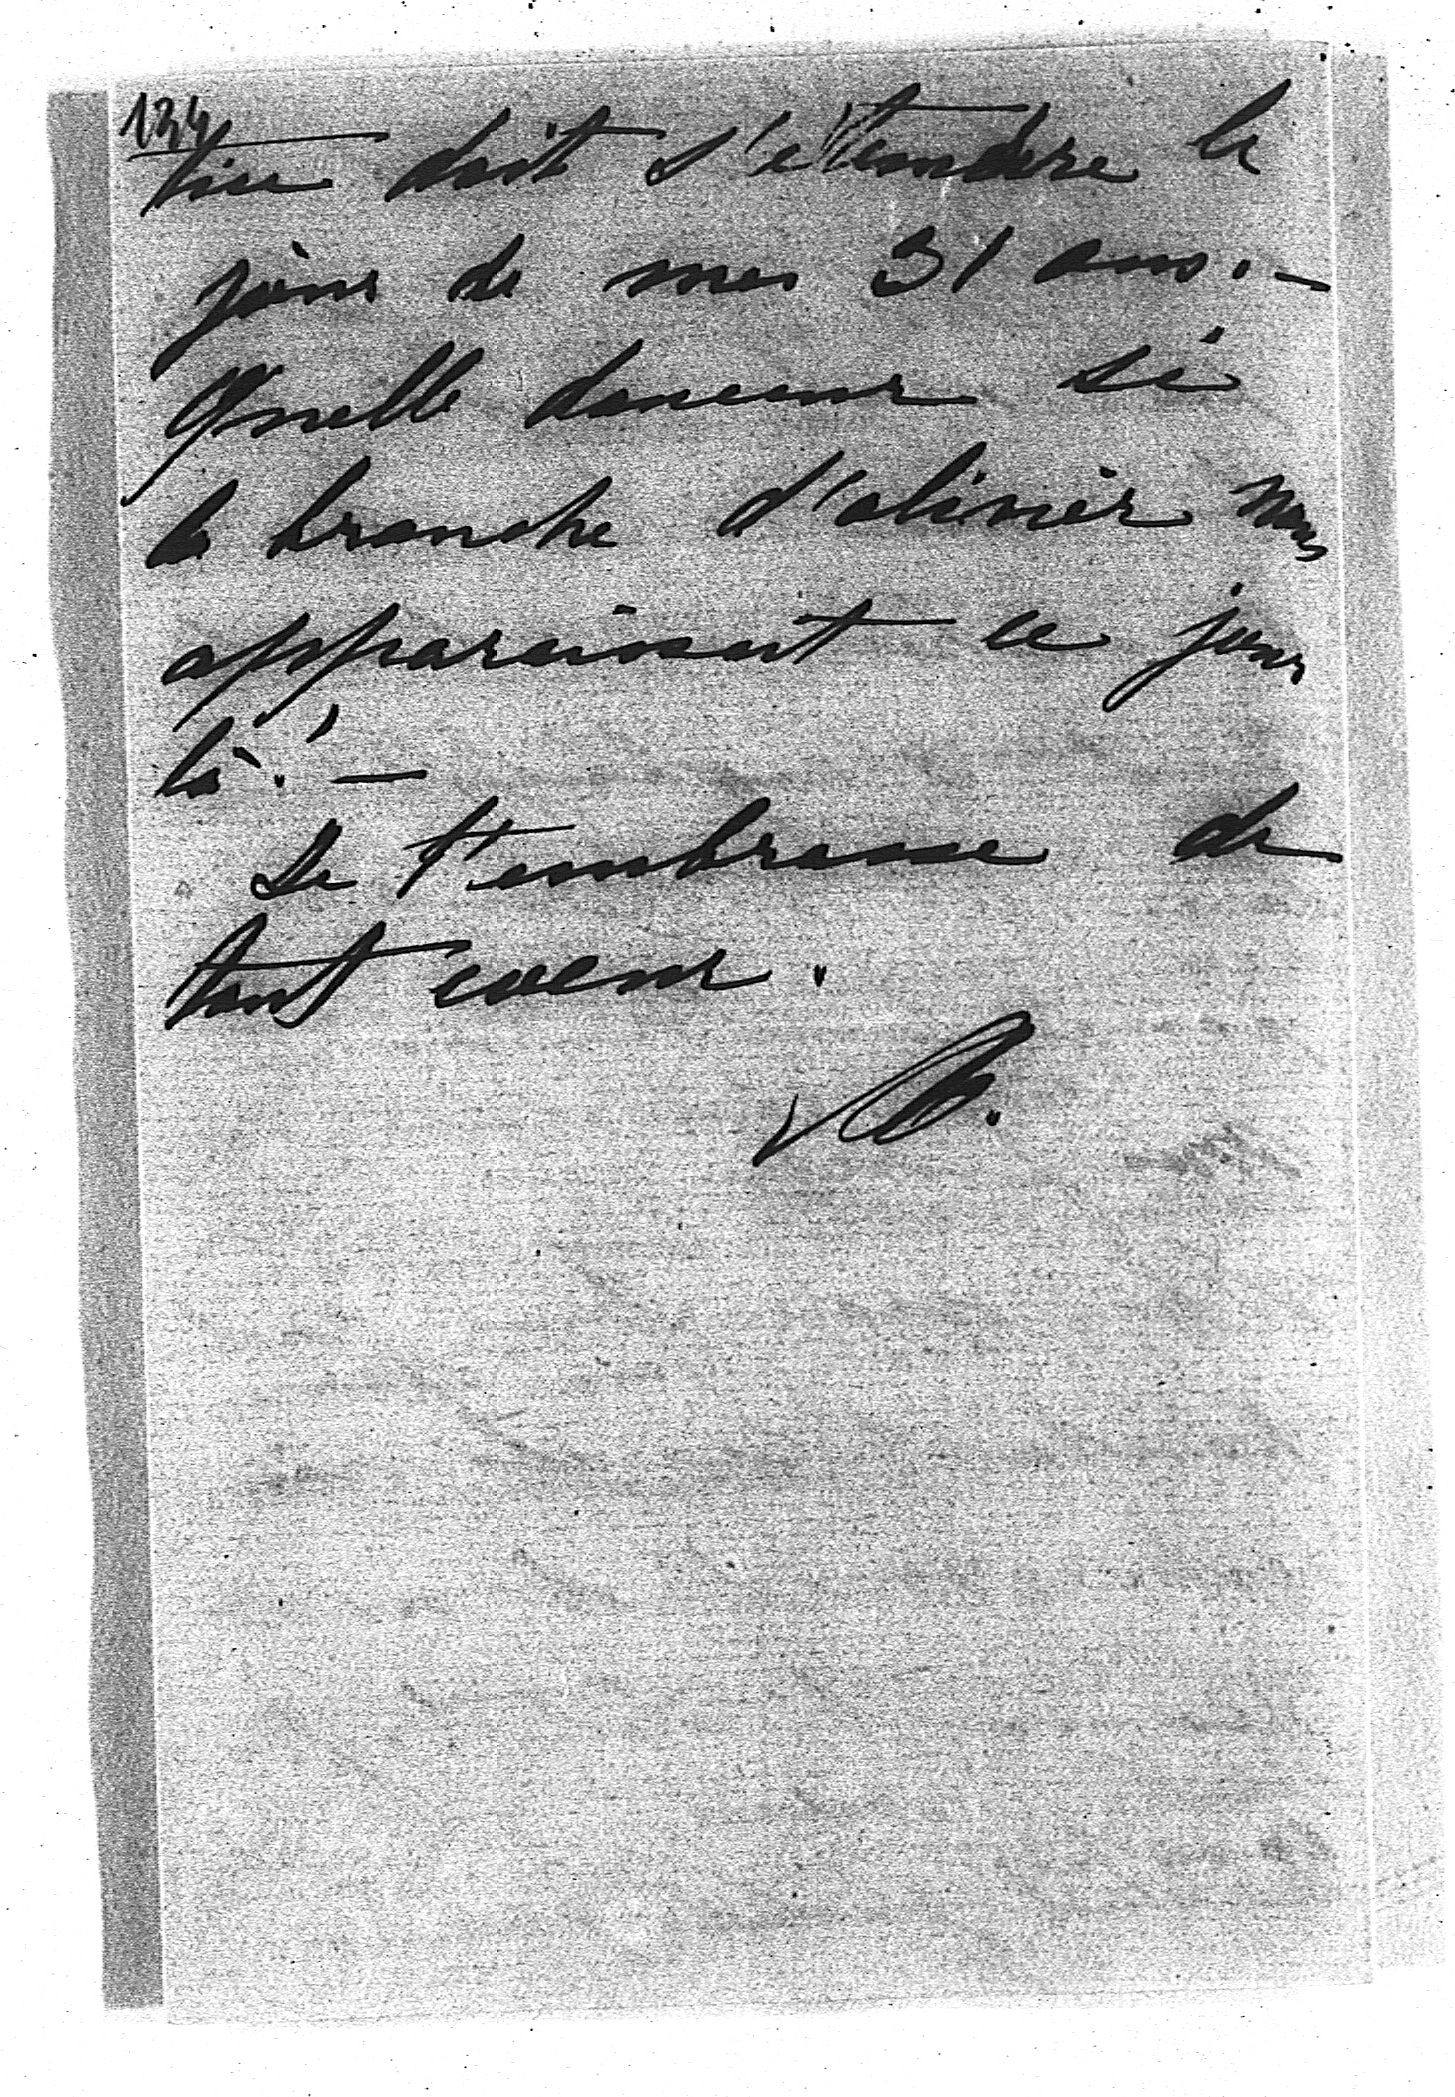 134
tice doit s'étendre le
jour de mes 31 ans. —
Quelle douceur si
la branche d'olivier nous
apparaissait ce jour
là! —
Je t'embrasse de
tout coeur.